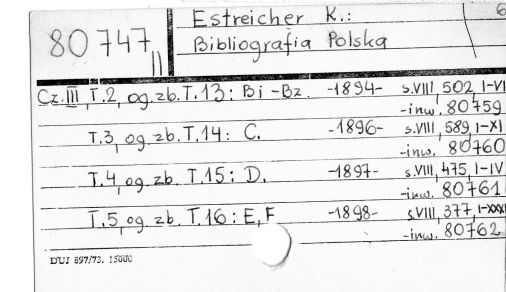 Estreicher K.: 6
80747 II
Bibliografia Polska
Cz. III, T.2, og. zb. T.13: Bi-Bz. -1894- s. VIII, 502, I-VI
-inw. 80759
T.3, og. zb. T.14: C. -1896- s. VIII, 589, I-XI
-inw. 80760
T.4, og. zb. T.15: D. -1897- s. VIII, 475, I-IV
-inw. 80761
T.5, og. zb. T.16: E, F -1898- s. VIII, 377, I-XXXI
-inw. 80762
DUJ 897/73. 15000